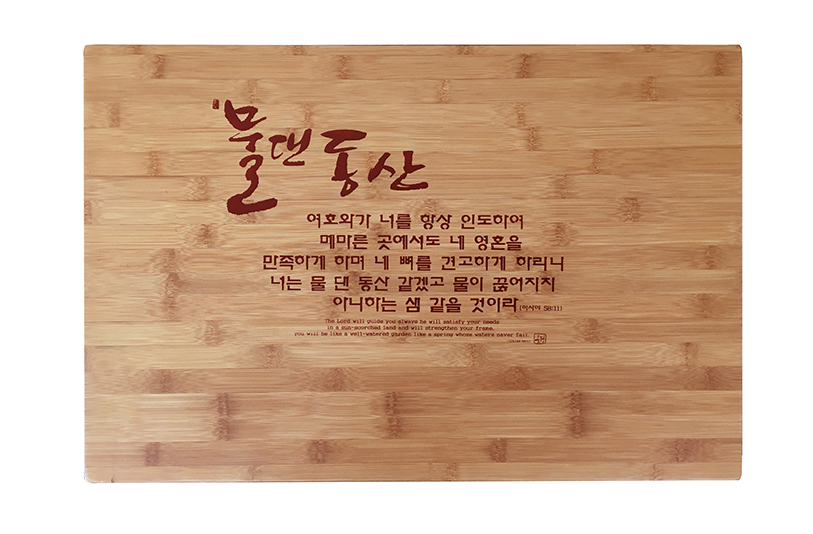 물댄동산
여호와가 너를 항상 인도하여
메마른 곳에서도 네 영혼을
만족하게 하며 네 뼈를 견고하게 하리니
너는 물 댄 동산 같겠고 물이 끊어지지
아니하는 샘 같을 것이라 (이사야 58:11)
The Lord will guide you always he will satisfy your needs
in a sun-scorched land and will strengthen your frame.
you will be like a well-watered garden like a spring whose waters never fail.